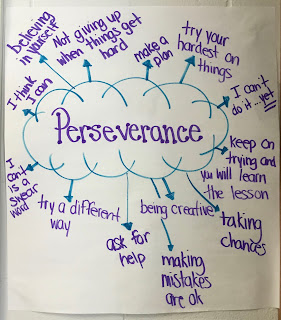 believing
in yourself
Not giving up
when things get
hard
make a
plan
try your
hardest on
things
I think
I can
I can't
do it...yet!!!
Perseverance
keep on
trying and
you will learn
the lesson
I
can't
is a
swear
word
try a different
way
being creative
taking
chances
ask for
help
making
mistakes
are ok